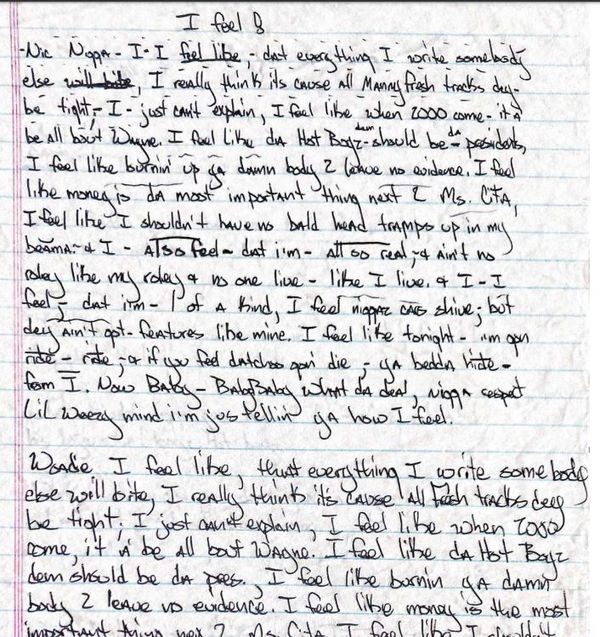 I feel 8
-Nic Nigga- I-I feel like,- dat everything I write somebody
else will bite, I really think its cause All Mannyfresh tracks dey-
be tight,- I- just can't explain, I feel like when 2000 come- it a
be all bout Wayne. I feel like da Hot Boyz dem should be- da presidents,
I feel like burnin' up ya damn body 2 leave no evidence. I feel
like money is da most important thing next 2 Ms. Cita,
I feel like I shouldn't have no bald head tramps up in my
beama-& I- Also feel- dat i'm- All so real,-& Ain't no
roley like my roley & no one live- like I live. & I-I
feel,- dat i'm- 1 of A kind, I feel niggaz cars shine; but
dey Ain't got- features like mine. I feel like tonight- i'm gon
ride- ride,-& if you feel datchoo gon' die,- ya bedda hide-
from I. Now Baby- BabyBaby what da deal, nigga respect
Lil Weezy mind i'm jus tellin ya how I feel.
Woadie I feel like, that everything I write somebody
else will bite, I really think its cause All Fresh tracks deey
be tight; I just can't explain, I feel like when 2000
come, it a' be All bout Wayne. I feel like da Hot Boyz
dem should be da pres. I feel like burnin ya damn
body 2 leave no evidence. I feel like money is the most
important thing nex 2 Ms. Cita I feel like I